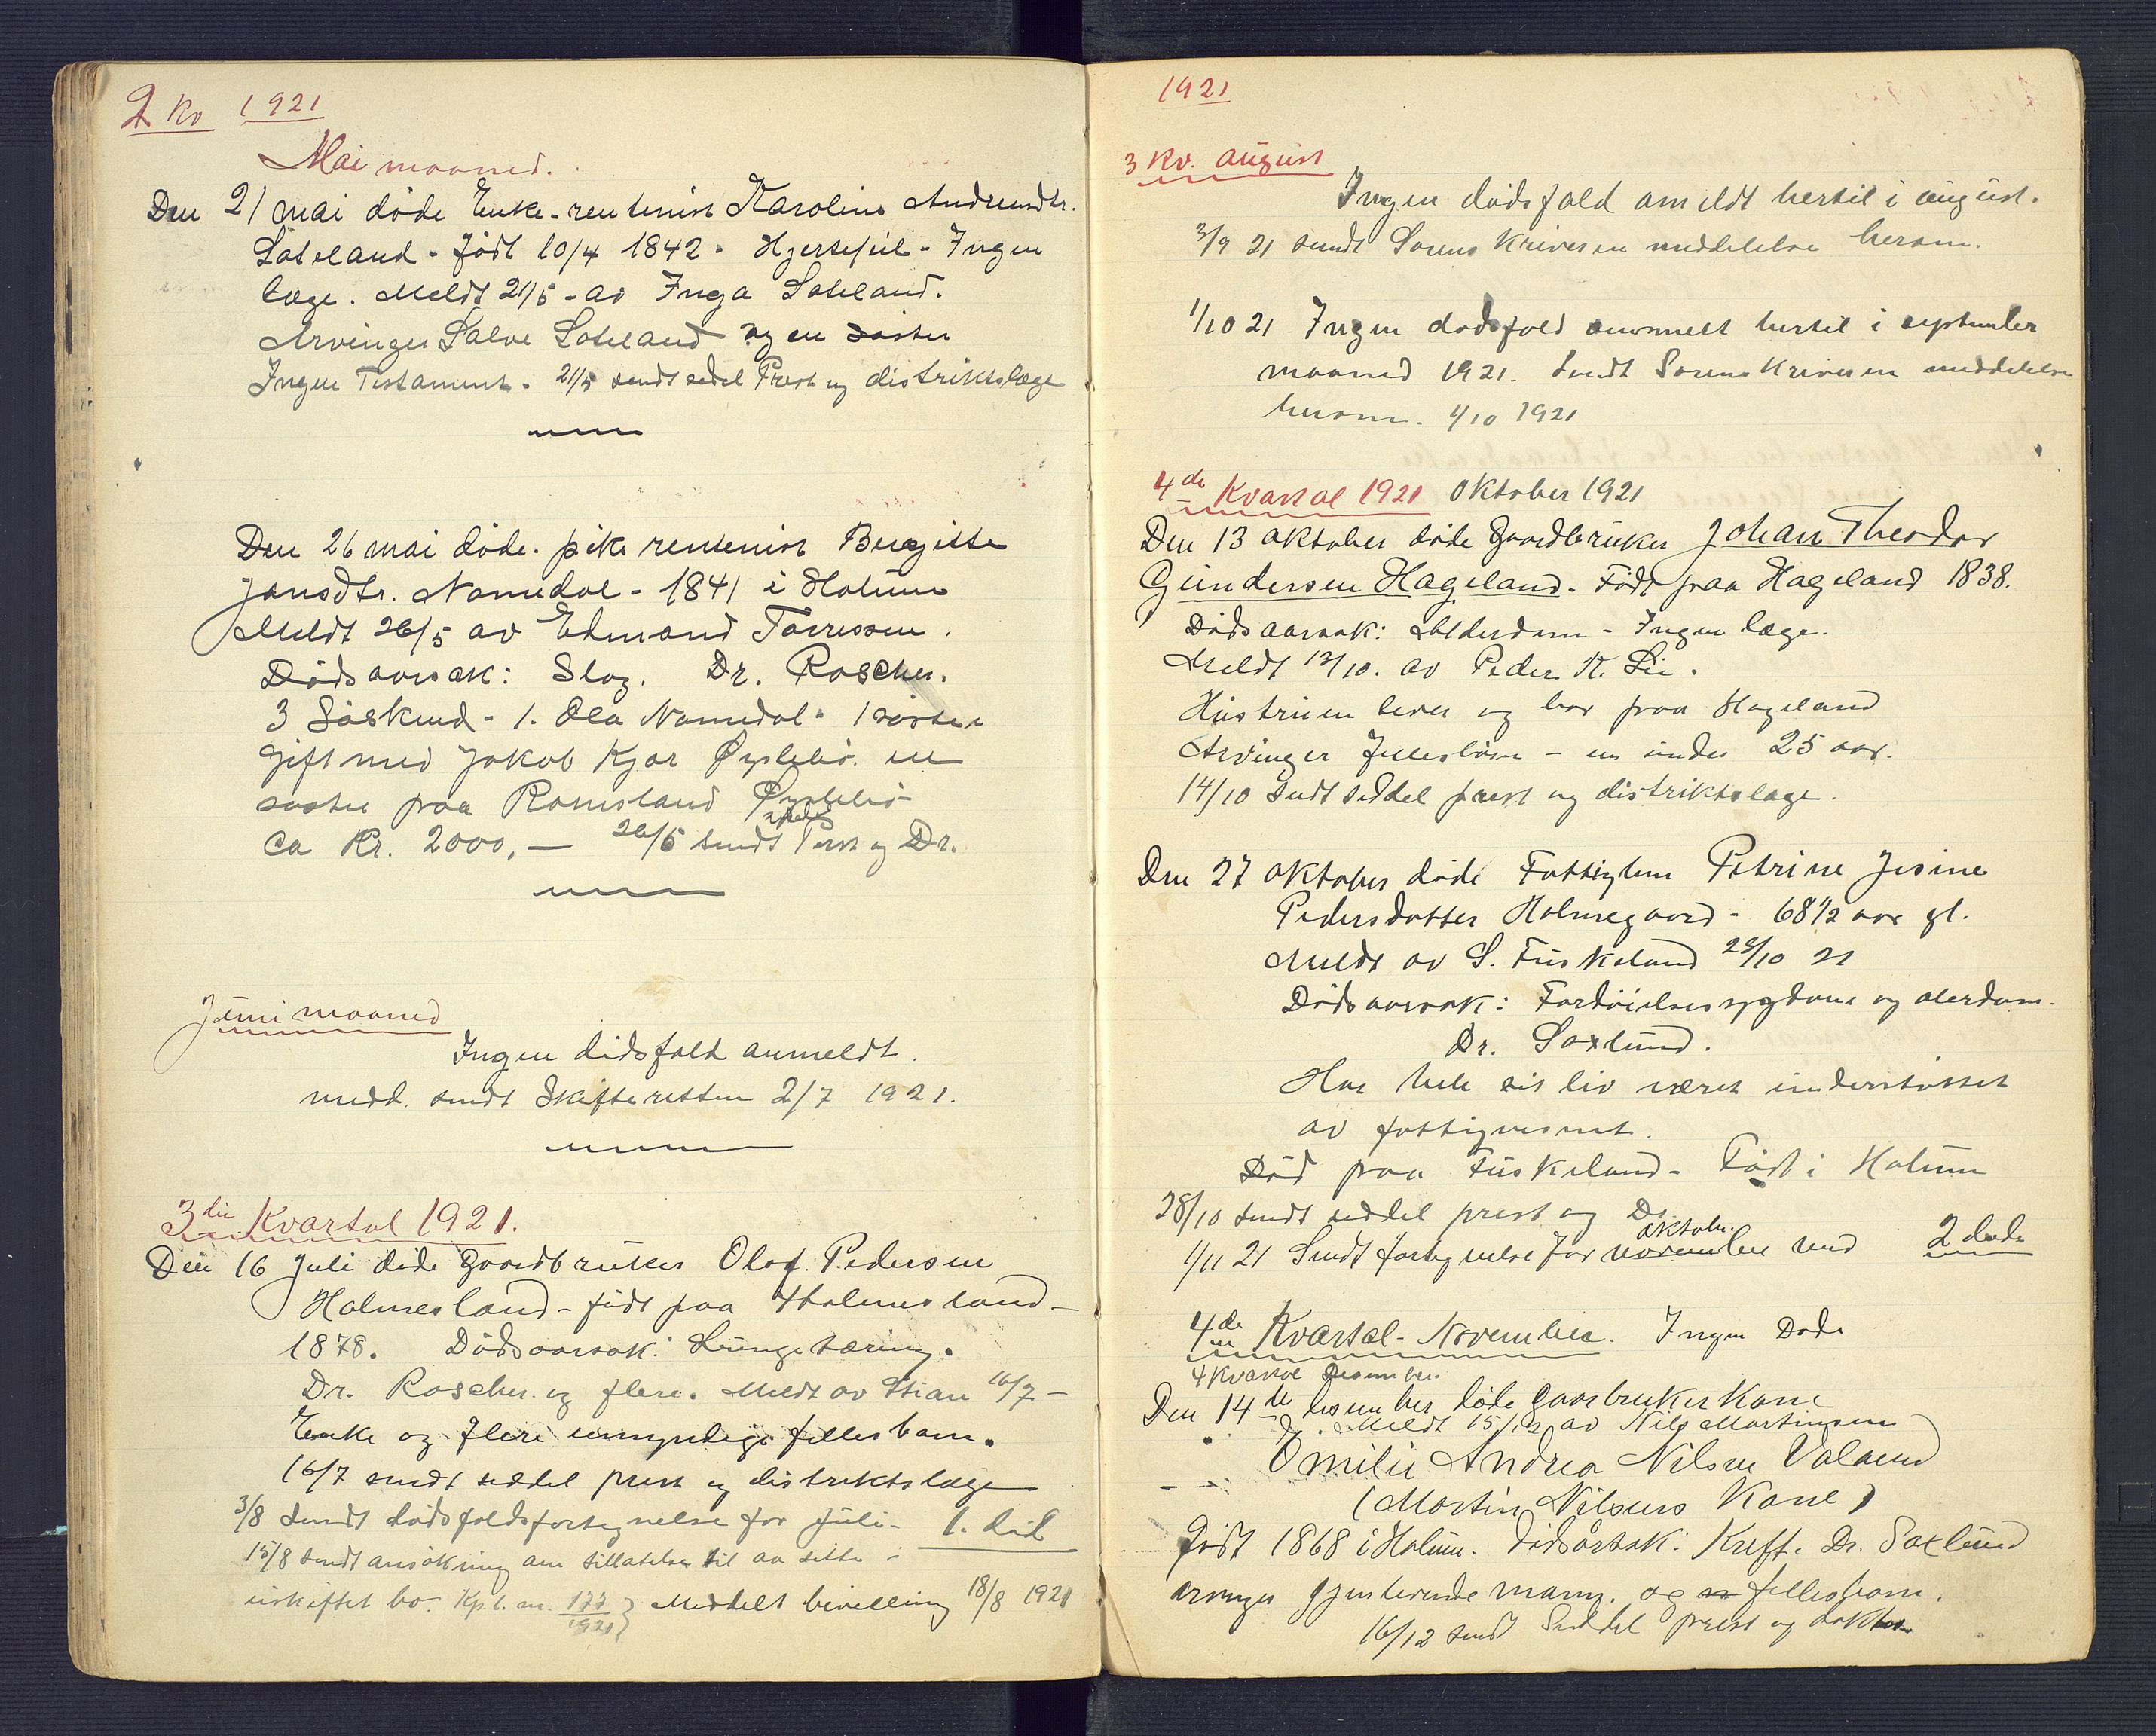 2 Kv 1921
Mai maaned.
Den 21 mai døde Enke-rentenist Karoline Andreasdtr.
Loteland - født 10/4 1842. Hjertefeil - Ingen
læge. Meldt 21/5 - av Inga Loteland.
Arvinger Salve Loteland og en søster
Ingen Testament. 21/5 sendt sedel Prest og distriktslæge
Den 26 mai døde. pike rentenist Bergitte
Jansdtr. Nomedal - 1841 i Holum
Meldt 26/5 av Edmand Torressen.
Dødsaarsak: Slag. Dr. Roscher.
3 Søskend - 1. Ola Nomedal. 1 søster
gift med Jakob Kjar Øyslebø. en
søster paa Romsland Øyslebø
ca Kr. 2000,— 26/5 sendt Prest og Dr.
Juni maaned
Ingen dødsfald anmeldt.
medd. sendt Skifteretten 2/7 1921.
3die Kvartal 1921.
Den 16 Juli døde gaardbruker Olaf Pedersen
Holmesland - født paa Holmesland -
1878. Dødsaarsak: Lungetæring.
Dr. Roscher og flere. Meldt av Stian 16/7 -
Enke og flere umyndige fellesbarn.
16/7 sendt seddel prest og distriktslæge
3/8 Sendt dødsfaldsfortegnelse for juli - 1. død
15/8 sendt ansøkning om tillatelse til aa sitte i
uskiftet bo. Kpl. nr. 177/1921 } Meddelt bevilling 18/8 1921
1921
3 Kv. august
Ingen dødsfald anmeldt hertil i august.
3/9 21 sendt Sorenskriveren meddelelse herom.
1/10 21 Ingen dødsfald anmeldt hertil i september
maaned 1921. Sendt Sorenskriveren meddelelse
herom. 1/10 1921
4de Kvartal 1921 Oktober 1921
Den 13 oktober døde Gaardbruker Johan Theodor
Gundersen Hageland. Født paa Hageland 1838.
Dødsaarsak: Alderdom - Ingen læge.
Meldt 13/10. av Peder K. Lie.
Hustruen lever og bor paa Hageland
Arvinger fellesbarn - en under 25 aar.
14/10 sendt seddel prest og distriktslæge.
Den 27 oktober døde Fattiglem Petrine Jesine
Pedersdatter Holmegaard - 68 1/2 aar gl.
Meldt av S. Fuskeland 28/10 21
Dødsaarsak: Fordøielsessygdom og alerdom.
Dr. Saxlund.
Har hele sit liv været understøttet
av fattigvesnet.
Død paa Fuskeland - Født i Holum
28/10 sendt seddel prest og Dr.
1/11 21 Sendt fortegnelse for november oktober med 2 døde
4de Kvartal - November. Ingen Døde
4 Kvartal Desember.
Den 14de desember døde gaarbrukerkone
Meldt 15/12 av Nils Martinsen
Emilie Andrea Nilsen Valand
(Martin Nilsens Kone)
født 1868 i Holum. Dødsårsak: Kreft. Dr. Saxlund
arvinger gjenlevende mann. og fellesbarn.
16/12 sendt Seddel prest og doktor